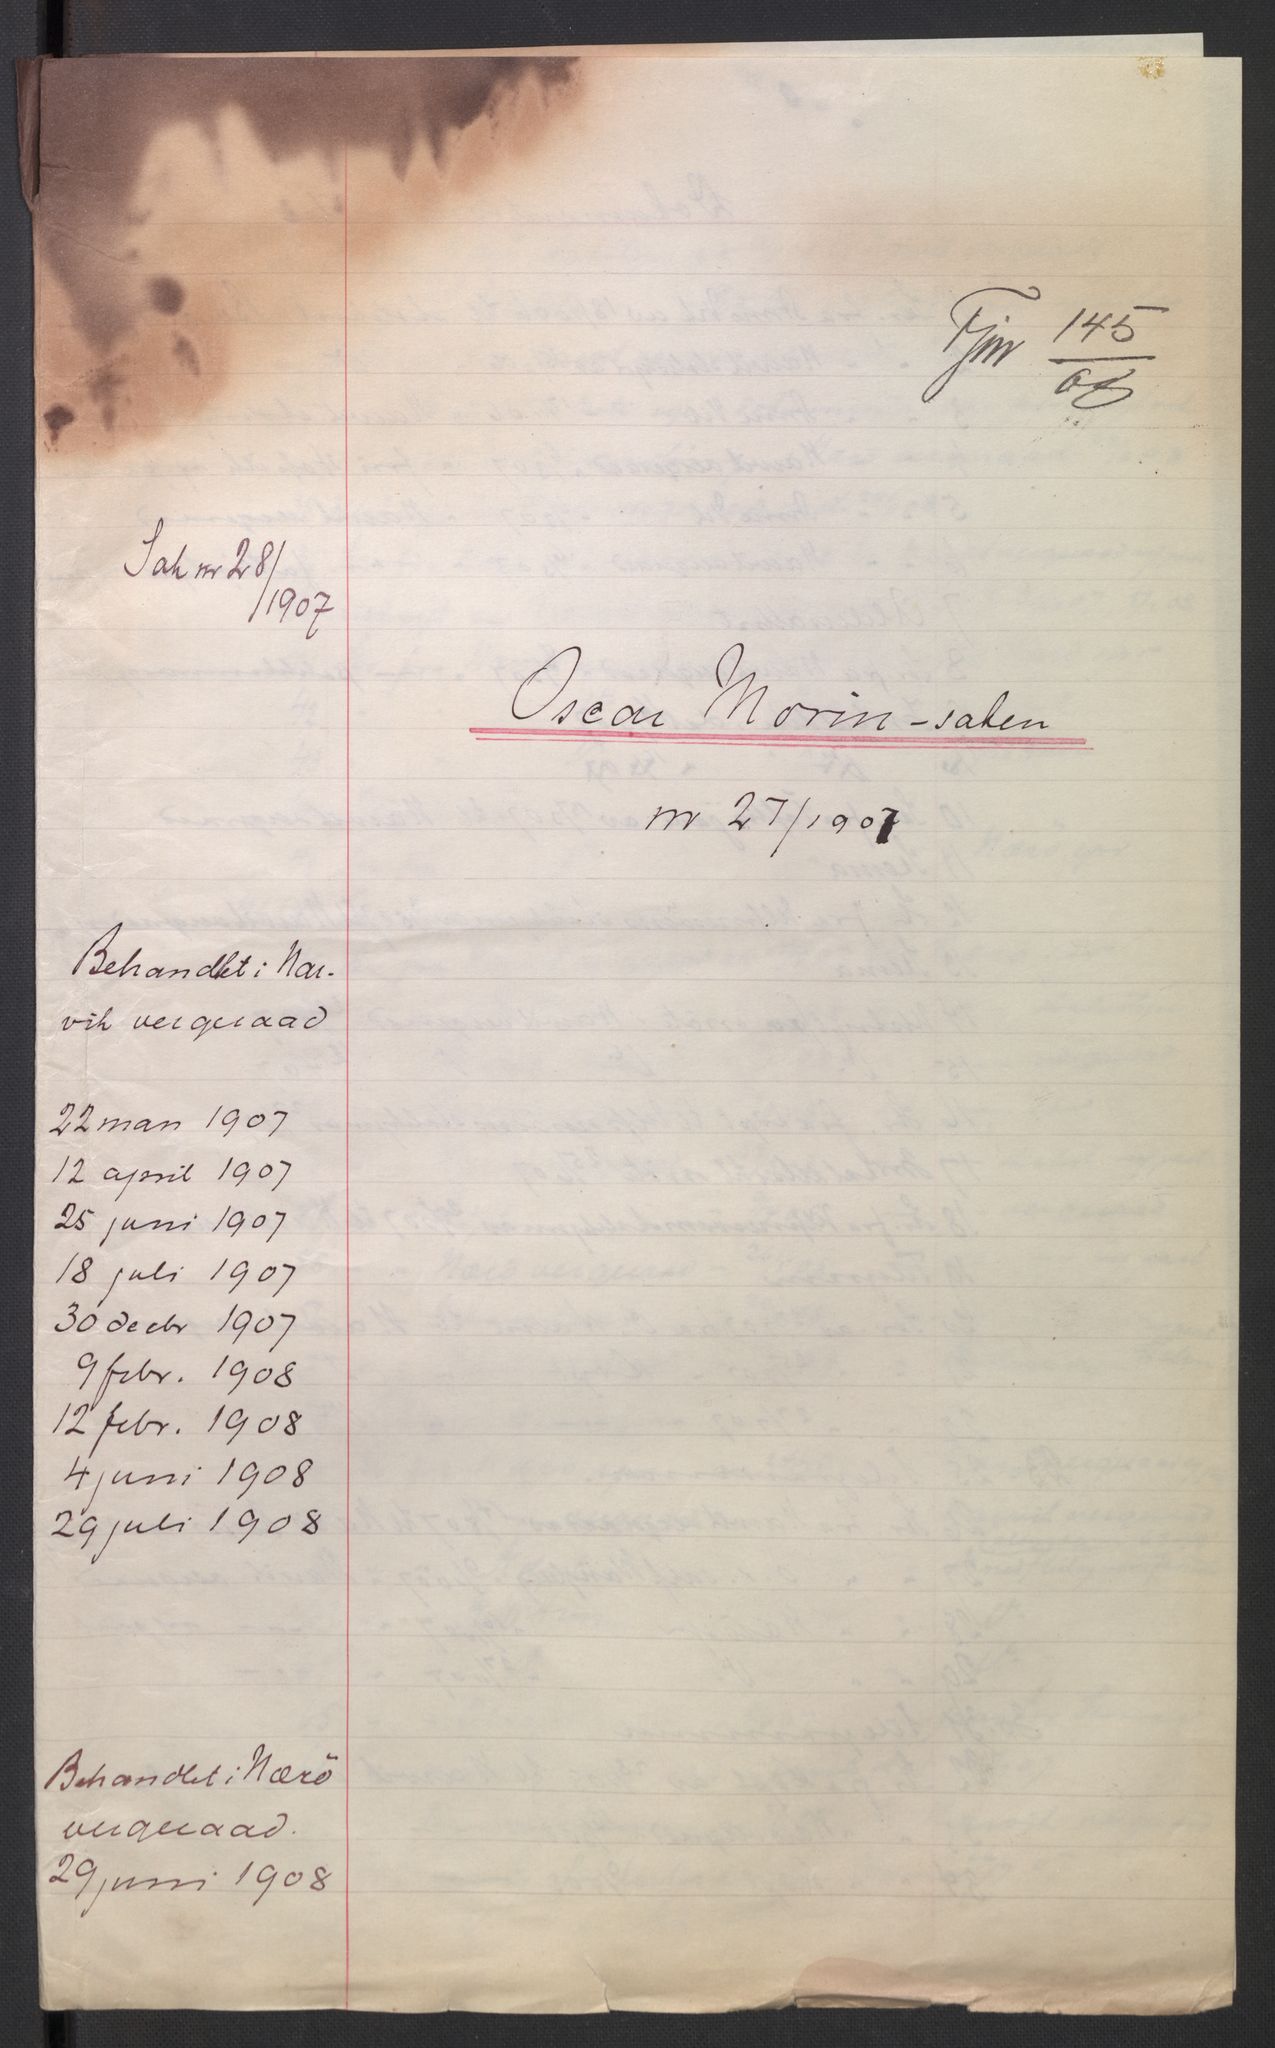 Fjnr 145/08
Sak nr 28/
/1907
Oscar Morin-saken
nr 27/1907
Behandlet i Nar-
vik vergeraad
22 mars 1907
12 april 1907
25 juni 1907
18 juli 1907
30 decbr 1907
9 febr. 1908
12 febr. 1908
4 juni 1908
29 juli 1908
Behandlet i Nærö
vergeraad.
29 juni 1908